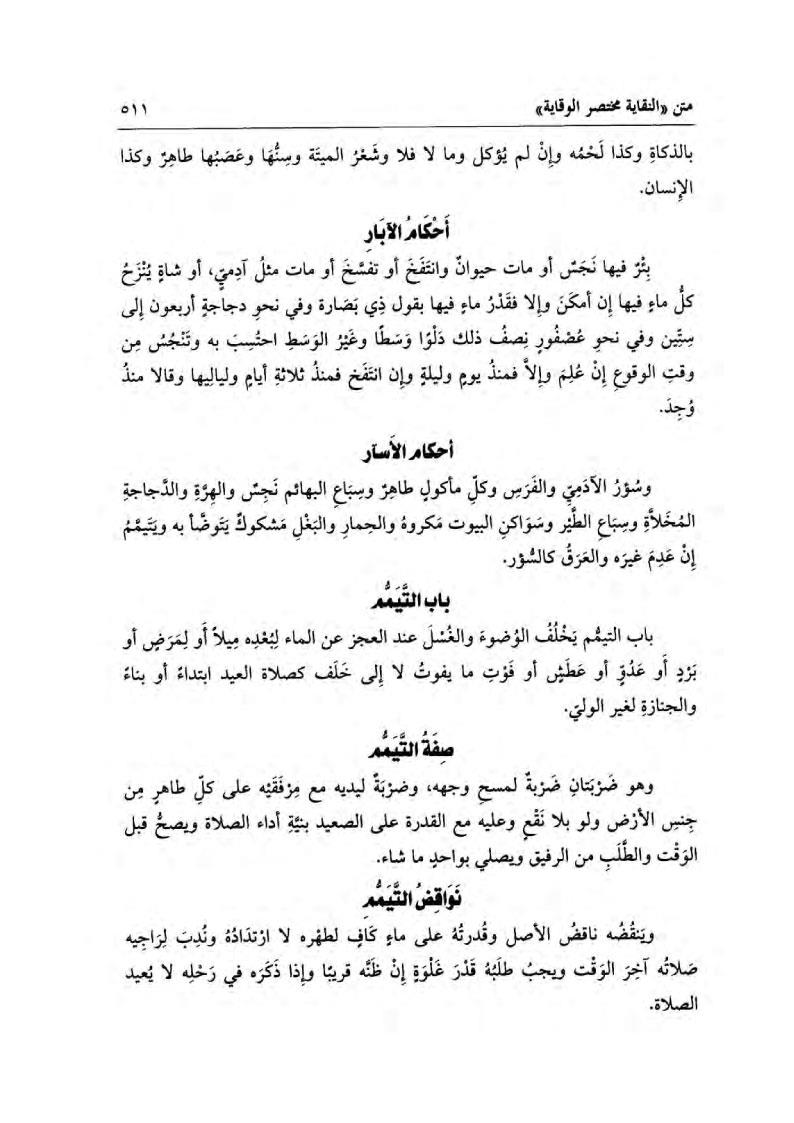 متن «النقاية مختصر الوقاية»
٥١١
بالذكاةِ وكذا لَحْمُه وإِنْ لم يُؤكل وما لا فلا وشَعْرُ الميتَة وسِنُّهَا وعَصَبُها طاهِرٌ وكذا
الإنسان.
أَحْكَامُ الآبَارِ
بِئْرٌ فيها نَجَسٌ أو مات حيوانٌ وانتَفَخَ أو تفسَّخَ أو مات مثلُ آدِميٍّ، أو شاةٍ يُنْزَحُ
كلُّ ماءٍ فيها إن أمكَنَ وإلا فقَدْرُ ماءٍ فيها بقول ذِي بَصَارة وفي نحوِ دجاجةٍ أربعون إلى
سِتِّين وفي نحوِ عُصْفُورٍ نِصفُ ذلك دَلْوًا وَسَطًا وغَيْرُ الوَسَطِ احتُسِبَ به وتَنْجُسُ مِن
وقتِ الوقوعِ إِنْ عُلِمَ وإلاَّ فمنذُ يومٍ وليلةٍ وإن انتَفَخ فمنذُ ثلاثةِ أيامٍ ولياليها وقالا منذُ
وُجِدَ.
أحكام الأسآر
وسُؤرُ الآدَمِيِّ والفَرَسِ وكلِّ مأكولٍ طاهِرٌ وسِبَاعِ البهائم نَجِسٌ والهِرَّةِ والدَّجاجةِ
المُخَلاَّةِ وسِبَاعِ الطَّيْر وسَوَاكنِ البيوت مَكروهٌ والحِمارِ والبَغْلِ مَشكوكٌ يَتَوضَّأ به ويَتَيمَّمُ
إِنْ عَدِمَ غيرَه والعَرَقُ كالسُّؤر.
باب التَّيَمُّم
باب التيمُّم يَخْلُفُ الوُضوءَ والغُسْلَ عند العجز عن الماء لِبُعْدِه مِيلاً أَو لِمَرَضٍ أو
بَرْدٍ أَو عَدُوٍّ أو عَطَشٍ أو فَوْتِ ما يفوتُ لا إلى خَلَف كصلاة العيد ابتداءً أو بناءً
والجنازةِ لغير الوليّ.
صِفَةُ التَّيَمُّم
وهو ضَرْبَتَانِ ضَرْبةٌ لمسحِ وجهه، وضرْبَةٌ ليديه مع مِرْفَقَيْه على كلِّ طاهرٍ مِن
جِنسِ الأرْض ولو بلا نَقْعٍ وعليه مع القدرة على الصعيد بنيَّةِ أداء الصلاة ويصحُّ قبل
الوَقْت والطَّلَبِ من الرفيق ويصلي بواحدٍ ما شاء.
نَوَاقِضُ التَّيَمُّم
ويَنقُضُه ناقضُ الأصل وقُدرتُهُ على ماءٍ كَافٍ لطهْره لا ارْتدَادُهُ ونُدِبَ لِرَاجِيه
صَلاتُه آخِرَ الوَقْت ويجبُ طلَبُهُ قَدْرَ غَلْوَةٍ إِنْ ظَنَّه قريبًا وإذا ذَكَرَه في رَحْلِه لا يُعيد
الصلاة.